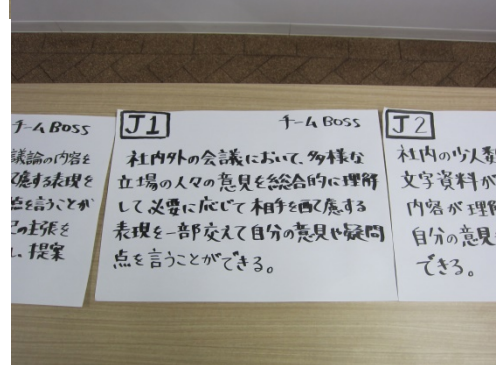 チーム BOSS
議論の内容を
慮する表現を
点を言うことが
の主張を
、提案
J1
チーム BOSS
社内外の会議において、多様な
立場の人々の意見を総合的に理解
して必要に応じて相手を配慮する
表現を一部交えて自分の意見や疑問
点を言うことができる。
J2
社内の少人数
文字資料が
内容が理解
自分の意見
できる。